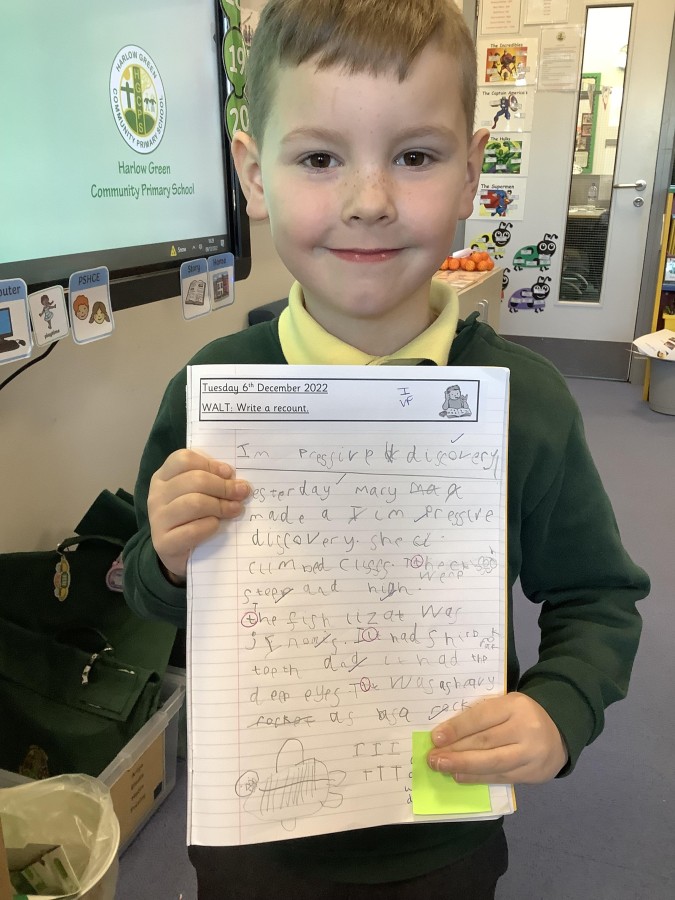 HARLOW GREEN
COMMUNITY PRIMARY SCHOOL
Harlow Green
Community Primary School
The Incredibles
The Captain America's
The Hulks
The Supermen
PSHCE
Story
Home
Tuesday 6th December 2022
WALT: Write a recount.
I
VF
Im pressive discovery
yesterday mary
made a Im pressive
discovery. She
climbed Cliffs. The
were
steep and high.
the fish liz at was
had Sh
teeth it had the
deep eyes. It Was as heavy
as a rock
I I I
T T T